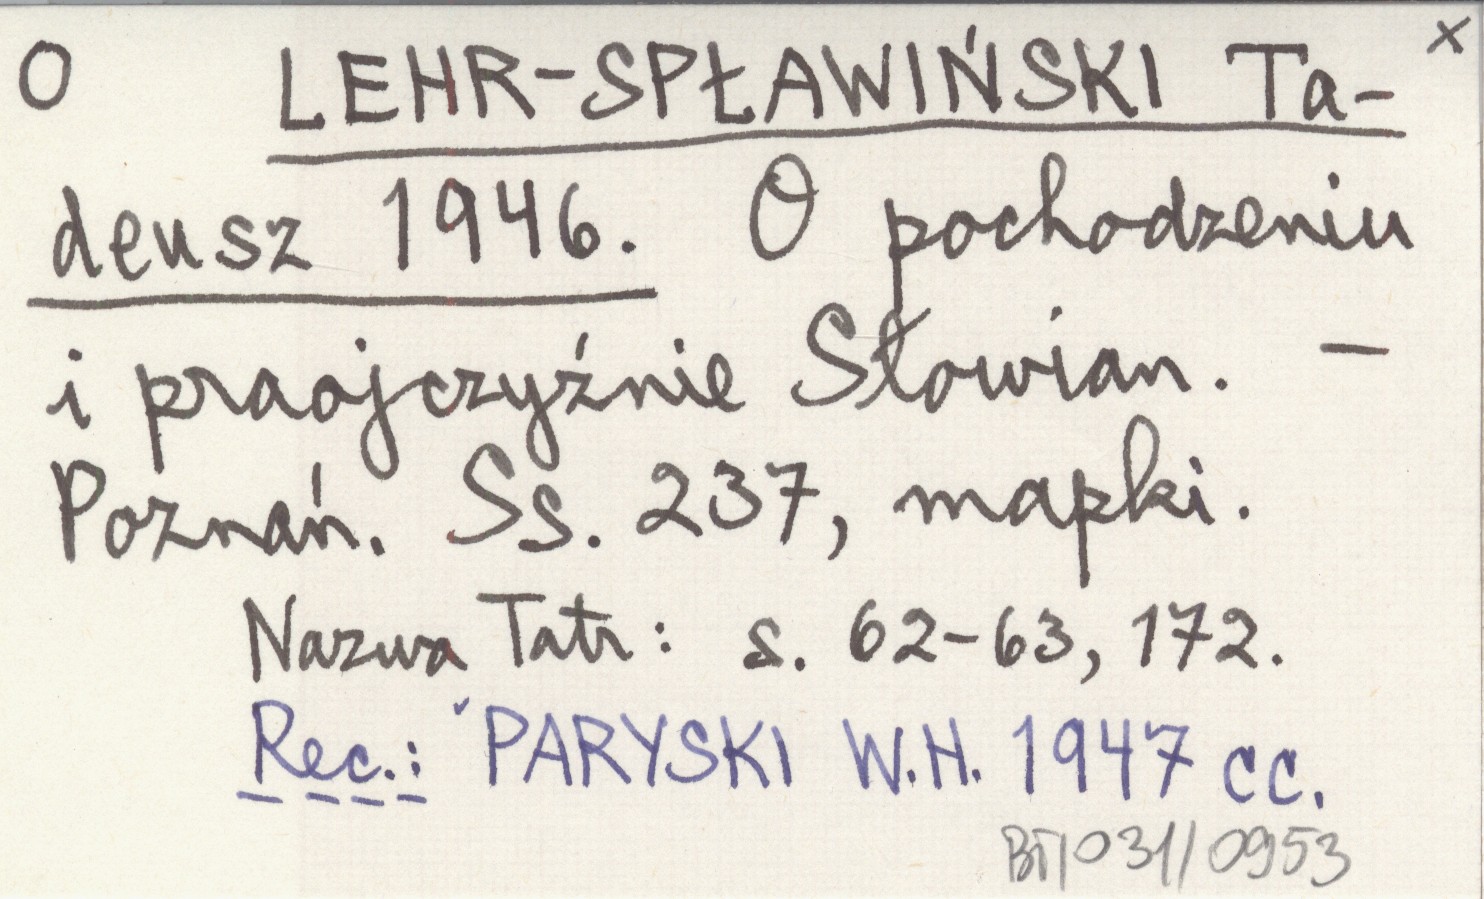 O LEHR-SPŁAWIŃSKI Ta- x
deusz 1946. O pochodzeniu
i praojczyźnie Słowian. —
Poznań. Ss. 237, mapki.
Nazwa Tatr: s. 62-63, 172.
Rec.: PARYSKI W.H. 1947 cc.
BT/031//0953